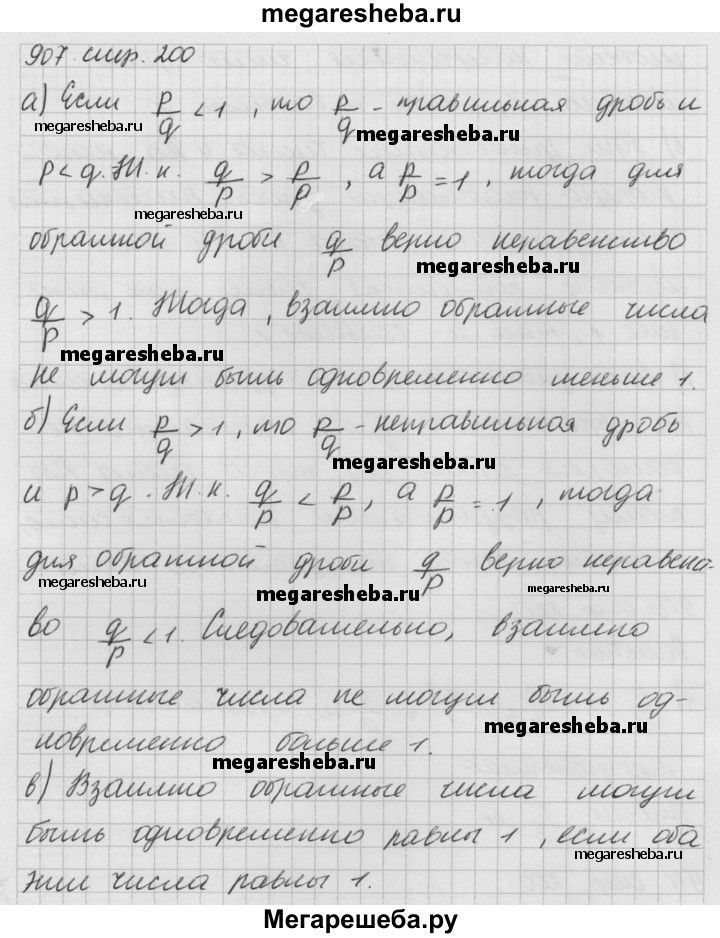 megaresheba.ru
907. стр. 200
а) Если p/q < 1, то p/q - правильная дробь и
megaresheba.ru megaresheba.ru
p < q. Т.к. q/p > p/p, а p/p = 1, тогда для
megaresheba.ru
обратной дроби q/p верно неравенство
megaresheba.ru
q/p > 1. Тогда, взаимно обратные числа
megaresheba.ru
не могут быть одновременно меньше 1.
б) Если p/q > 1, то p/q - неправильная дробь
megaresheba.ru
и p > q. Т.к. q/p < p/p, а p/p = 1, тогда
для обратной дроби q/p верно неравенс-
megaresheba.ru megaresheba.ru megaresheba.ru
во q/p < 1. Следовательно, взаимно
обратные числа не могут быть од-
megaresheba.ru
новременно больше 1.
megaresheba.ru
в) Взаимно обратные числа могут
быть одновременно равны 1, если оба
megaresheba.ru
эти числа равны 1.
Мегарешеба.ру